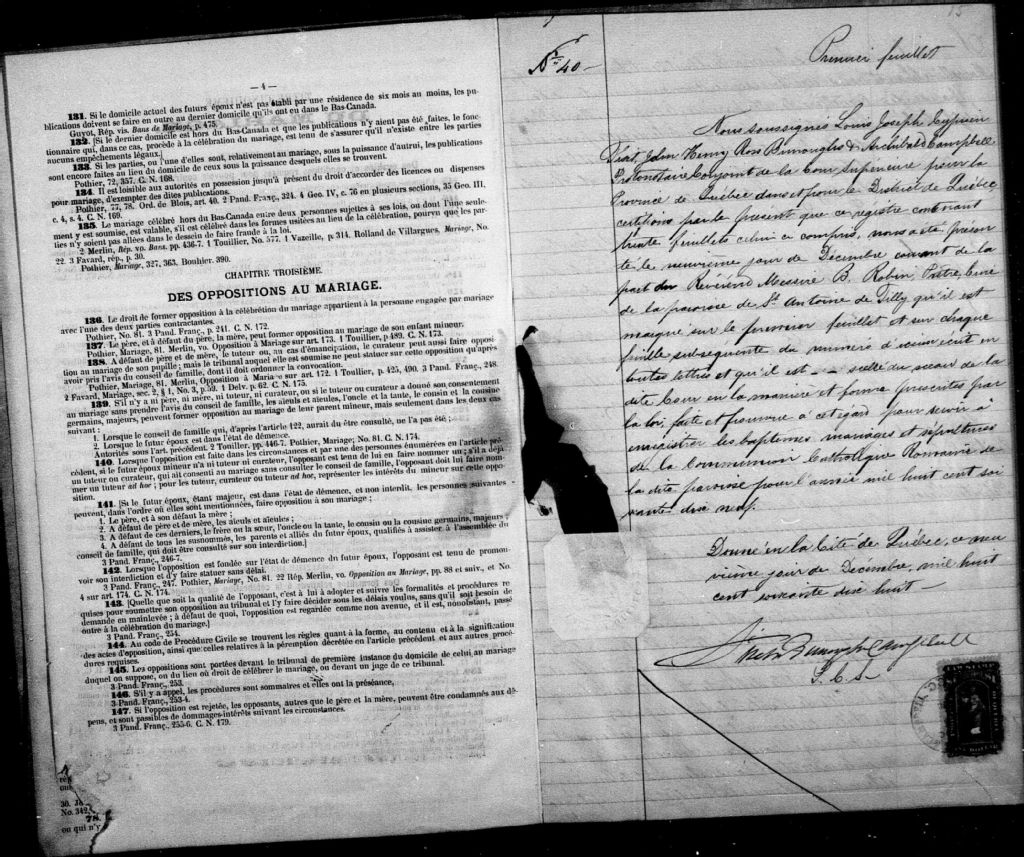 — 4 —
131. Si le domicile actuel des futurs époux n'est pas établi par une résidence de six mois au moins, les pu-
blications doivent se faire en outre au dernier domicile qu'ils ont eu dans le Bas-Canada.
Guyot, Rép. vis. Bans de Mariage, p. 475.
132. [Si le dernier domicile est hors du Bas-Canada et que les publications n'y aient pas été faites, le fonc-
tionnaire qui, dans ce cas, procède à la célébration du mariage, est tenu de s'assurer qu'il n'existe entre les parties
aucuns empêchements légaux.]
133. Si les parties, ou l'une d'elles sont, relativement au mariage, sous la puissance d'autrui, les publications
sont encore faites au lieu du domicile de ceux sous la puissance desquels elles se trouvent.
Pothier, 72, 357. C. N. 168.
134. Il est loisible aux autorités en possession jusqu'à présent du droit d'accorder des licences ou dispenses
pour mariage, d'exempter des dites publications.
Pothier, 77, 78. Ord. de Blois, art. 40. 2 Pand. Franç., 324. 4 Geo. IV, c. 76 en plusieurs sections, 35 Geo. III,
c. 4, s. 4. C. N. 169.
135. Le mariage célébré hors du Bas-Canada entre deux personnes sujettes à ses lois, ou dont l'une seule-
ment y est soumise, est valable, s'il est célébré dans les formes usitées au lieu de la célébration, pourvu que les par-
ties n'y soient pas allées dans le dessein de faire fraude à la loi.
2 Merlin, Rép. vo. Bans, pp. 436-7. 1 Touillier, No. 577. 1 Vazeille, p. 314. Rolland de Villargues, Mariage, No.
22. 3 Favard, rép., p. 30.
Pothier, Mariage, 327, 363. Bouhier. 390.
CHAPITRE TROISIÈME.
DES OPPOSITIONS AU MARIAGE.
136. Le droit de former opposition à la célébration du mariage appartient à la personne engagée par mariage
avec l'une des deux parties contractantes.
Pothier, No. 81. 3 Pand. Franç., p. 241. C. N. 172.
137. Le père, et à défaut du père, la mère, peut former opposition au mariage de son enfant mineur.
Pothier, Mariage, 81. Merlin, vo. Opposition à Mariage sur art. 173. 1 Touillier, p 489. C. N. 173.
138. A défaut de père et de mère, le tuteur ou, au cas d'émancipation, le curateur peut aussi faire opposi-
tion au mariage de son pupille; mais le tribunal auquel elle est soumise ne peut statuer sur cette opposition qu'après
avoir pris l'avis du conseil de famille, dont il doit ordonner la convocation.
Pothier, Mariage, 81. Merlin, Opposition à Mariage sur art. 172. 1 Touillier, p. 425, 490. 3 Pand. Franç., 248.
2 Favard, Mariage, sec. 2, § 1, No. 3, p. 59. 1 Delv. p. 62. C. N. 175.
139. S'il n'y a ni père, ni mère, ni tuteur, ni curateur, ou si le tuteur ou curateur a donné son consentement
au mariage sans prendre l'avis du conseil de famille, les aïeuls et aïeules, l'oncle et la tante, le cousin et la cousine
germains, majeurs, peuvent former opposition au mariage de leur parent mineur, mais seulement dans les deux cas
suivant :
1. Lorsque le conseil de famille qui, d'après l'article 122, aurait du être consulté, ne l'a pas été ;
2. Lorsque le futur époux est dans l'état de démence.
Autorités sous l'art. précédent. 2 Toniller, pp. 446-7. Pothier, Mariage; No. 81. C. N. 174.
140. Lorsque l'opposition est faite dans les circonstances et par une des personnes énumérées en l'article pré-
cédent, si le futur époux mineur n'a ni tuteur ni curateur, l'opposant est tenu de lui en faire nommer un; s'il a déjà
un tuteur ou curateur, qui ait consenti au mariage sans consulter le conseil de famille, l'opposant doit lui faire nom-
mer un tuteur ad hoc ; pour les tuteur, curateur ou tuteur ad hoc, représenter les intérêts du mineur sur cette oppo-
sition.
141. [Si le futur époux, étant majeur, est dans l'état de démence, et non interdit, les personnes suivantes
peuvent, dans l'ordre où elles sont mentionnées, faire opposition à son mariage ;
1. Le père, et à son défaut la mère ;
2. A défaut de père et de mère, les aïeuls et aïeules ;
3. A défaut de ces derniers, le frère ou la sœur, l'oncle ou la tante, le cousin ou la cousine germains, majeurs ;
4. A défaut de tous les susnommés, les parents et alliés du futur époux, qualifiés à assister à l'assemblée du
conseil de famille, qui doit être consulté sur son interdiction.]
3 Pand. Franç., 246-7.
142. Lorsque l'opposition est fondée sur l'état de démence du futur époux, l'opposant est tenu de promou-
voir son interdiction et d'y faire statuer sans délai.
3 Pand. Franç., 247. Pothier, Mariage, No. 81. 22 Rép. Merlin, vo. Opposition au Mariage, pp. 88 et suiv., et No.
4 sur art. 174. C. N. 174.
143. [Quelle que soit la qualité de l'opposant, c'est à lui à adopter et suivre les formalités et procédures re-
quises pour soumettre son opposition au tribunal et l'y faire décider sous les délais voulus, sans qu'il soit besoin de
demande en mainlevée ; à défaut de quoi, l'opposition est regardée comme non avenue, et il est, nonobstant, passé
outre à la célébration du mariage.]
3 Pand. Franç., 254.
144. Au code de Procédure Civile se trouvent les règles quant à la forme, au contenu et à la signification
des actes d'opposition, ainsi que celles relatives à la péremption décrétée en l'article précédent et aux autres procé-
dures requises.
145. Les oppositions sont portées devant le tribunal de première instance du domicile de celui au mariage
duquel on suppose, ou du lieu où droit de célébrer le mariage, ou devant un juge de ce tribunal.
3 Pand. Franç., 253.
146. S'il y a appel, les procédures sont sommaires et elles ont la préséance.
3 Pand. Franç., 253-4.
147. Si l'opposition est rejetée, les opposants, autres que le père et la mère, peuvent être condamnés aux dé-
pens, et sont passibles de dommages-intérêts suivant les circonstances.
3 Pand. Franç., 255-6. C. N. 179.
30. Jo
No. 342,
78.
ou qui n'y
15
No 40 –
Premier feuillet
Nous soussignés Louis Joseph Cyprien
Fiset, John Henry Ross Burroughs & Archibald Campbell
Protonotaire Conjoint de la Cour Supérieure pour la
Province de Québec dans et pour le District de Québec
certifions par le présent que ce registre contenant
trente feuillets celui ci compris, nous a été présen
té le neuvième jour de Décembre courant de la
part du Révérend Messire B. Robin, Prêtre, Curé
de la paroisse de St Antoine de Tilly qu'il est
marqué sur le premier feuillet et sur chaque
feuille subséquente du numéro d'icelui écrit en
toutes lettres et qu'il est – – scellé du sceau de la
dite Cour en la manière et forme prescrites par
la loi, faite et pourvue à cet égard pour servir à
enregistrer les baptêmes mariages et sépultures
de la Communion Catholique Romaine de
la dite paroisse pour l'année mil huit cent soi
xante dix neuf.
Donné en la Cité de Québec, ce neu
vième jour de Décembre, mil huit
cent soixante dix huit —
Fiset Burroughs Campbell
P. C. S.
LAW STAMP
ONE DOLLAR